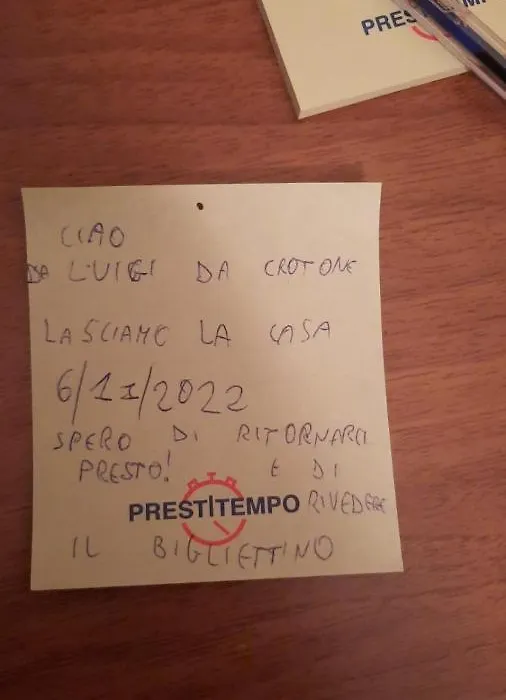 PRES
CIAO
DA LUIGI DA CROTONE
LASCIAMO LA CASA
6/11/2022
SPERO DI RITORNARCI
PRESTO! E DI
PRESTITEMPO RIVEDERE
IL BIGLIETTINO